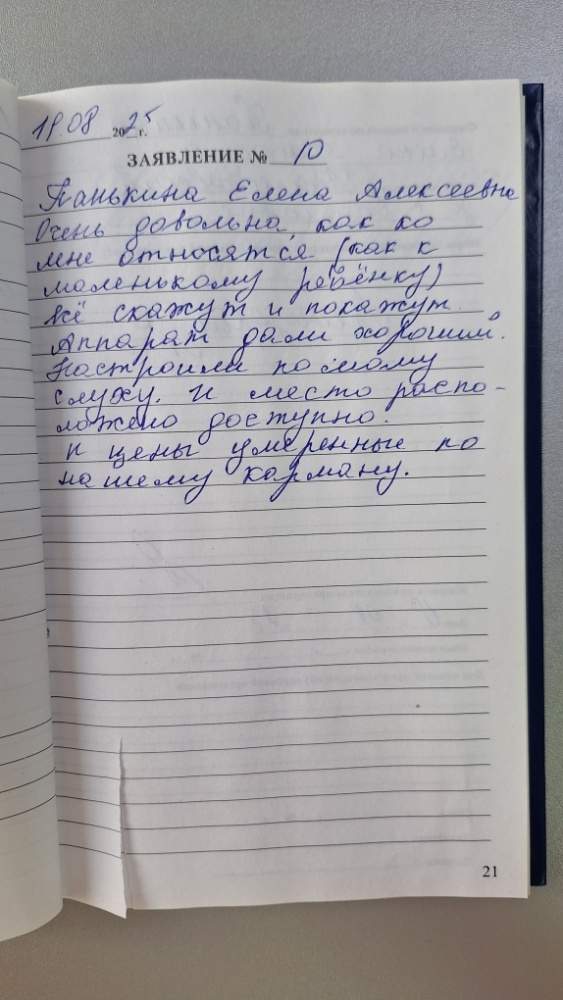 19.08 2025 г.
ЗАЯВЛЕНИЕ № 10
Панькина Елена Алексеевна
Очень довольна, как ко
мне относятся (как к
маленькому ребёнку)
всё скажут и покажут.
Аппарат дали хороший.
Настроили по моему
слуху. И место распо-
ложено доступно.
И цены умеренные по
нашему карману.
21